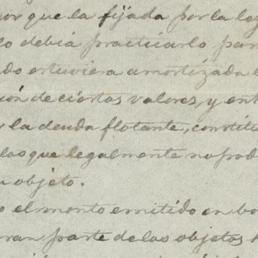 or que la fijada por la le
lo debia practicarlo par
do estuviera amortizada
ion de ciertos valores, y ent
la deuda flotante, constit
las que legalmente no pod
objeto.
o el monto emitido en bo
ran parte de los objetos